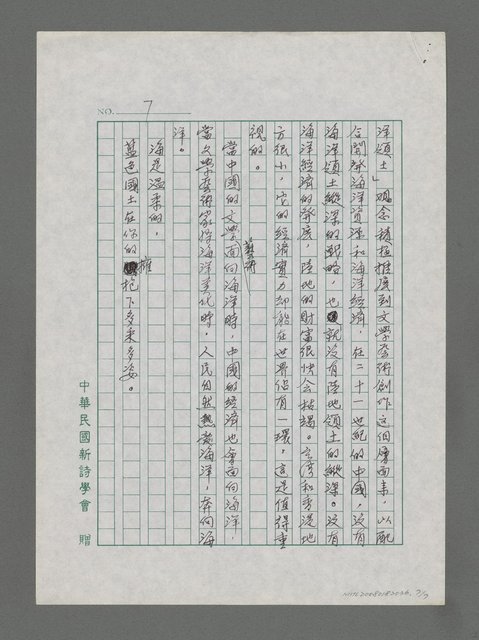 NO. 7
洋領土」觀念積極推展到文學藝術創作這個層面來，以配
合開發海洋資源和海洋經濟，在二十一世紀的中國，沒有
海洋領土縱深的戰略，也就沒有陸地領土的縱深。沒有
海洋經濟的發展，陸地的財富很快會枯竭。台灣和香港地
方很小，它的經濟實力却能在世界佔有一環，這是值得重
視的。
當中國的文學藝術面向海洋時，中國的經濟也會面向海洋，
當文學藝術家將海洋美化時，人民自然熱愛海洋，奔向海
洋。
海是溫柔的，
藍色國土在你的擁抱下多采多姿。
中華民國新詩學會 贈
7/7